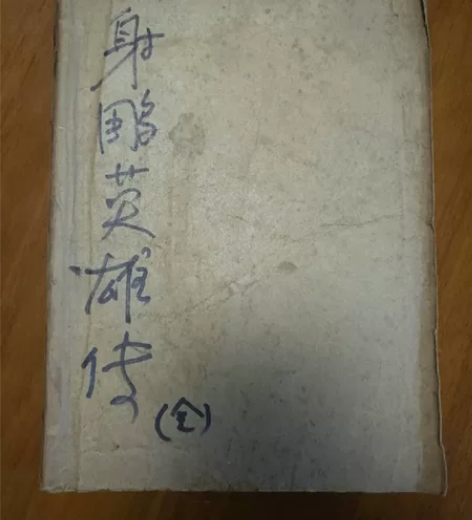 射鵰英雄传
(全)